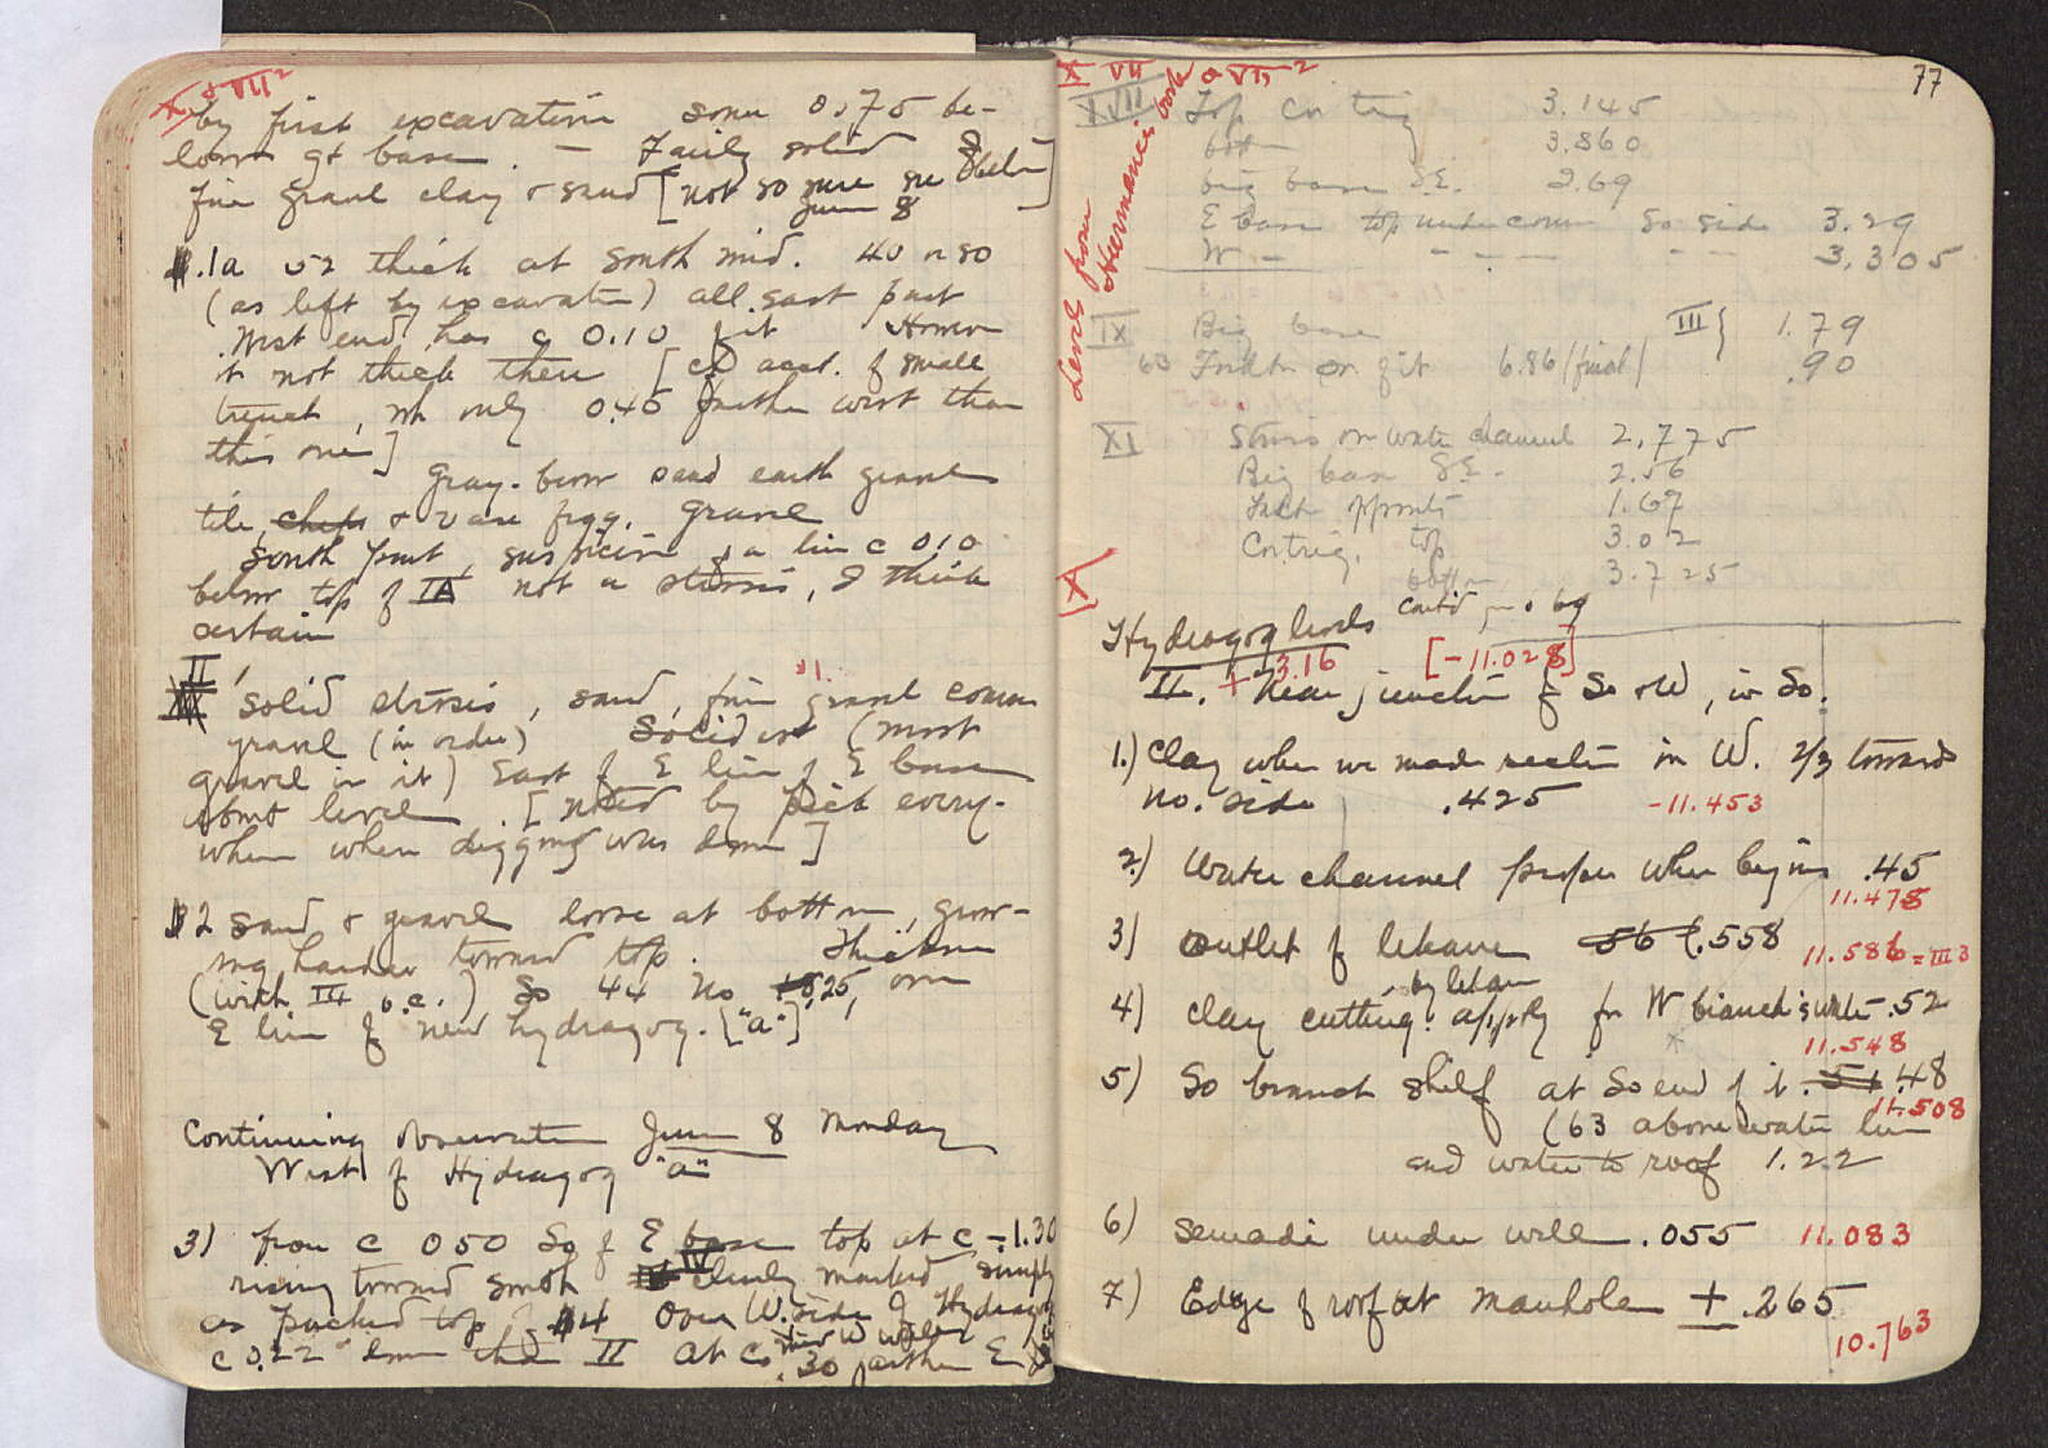 X, & VII²
by first excavation some 0.75 be-
low gt base. — Fairly solid
fine gravel clay & sand [not so sure see 8 below]
June 8
.1a 52 thick at south mid. 40 or so
(as left by excavation) all east part
West end has c 0.10 of it However
it not thick there [cf acct. of small
trench, wh only 0.45 farther west than
this one]
Gray-brown sand earth gravel
tile, chips & vase frgg. gravel
South part, suspicion of a line c 010
below top of IA not a strosis, I think
certain
II
solid strosis, sand, fine gravel coarse
*1.
gravel (in order) Solidest (most
gravel in it) East of E line of E base
about level. [noted by pick every-
where when digging was done]
2 sand & gravel loose at bottom, grow-
ing harder toward top. Thickness
(with III o.c.) So 44 No .25, over
E line of new hydragog. ["a"]
Continuing observation June 8 Monday
West of Hydragog "a"
3) from c 050 So of E base top at c -1.30
rising toward south IV clearly marked simply
as packed top of 4 over W. side of Hydragog
c 0.22 lower than II at c. .30 farther E
77
X VII & VII²
Levels from Heermance's book
XVII Top Cortrig 3.145
bottom 3.860
big base S.E. 2.69
E base top under corner So side 3.29
W - - - - - - 3.305
IX Big base III} 1.79
63 Fndtn on fit 6.86 (final) .90
XI Stones on water channel 2.775
Big base S.E. - 2.56
1.67
Cortrig. top 3.02
bottom 3.725
X
Hydragog levels cont'd from p. 69
+ 3.16 [-11.028]
II. Near junction of So & W, in So.
1.) Clay where we made section in W. 2/3 toward
no. side .425 -11.453
2.) Water channel proper where begins .45
11.478
3) Outlet of lekane 56 (.558 11.586 = III 3
4) Clay cutting by lekane apply for W branch's water .52
11.548
5) So branch shelf at So end of it .51 .48
11.508
(63 above water line
and water to roof 1.22
6) Semadi under well .055 11.083
7) Edge of roof at manhole ± .265
10.763